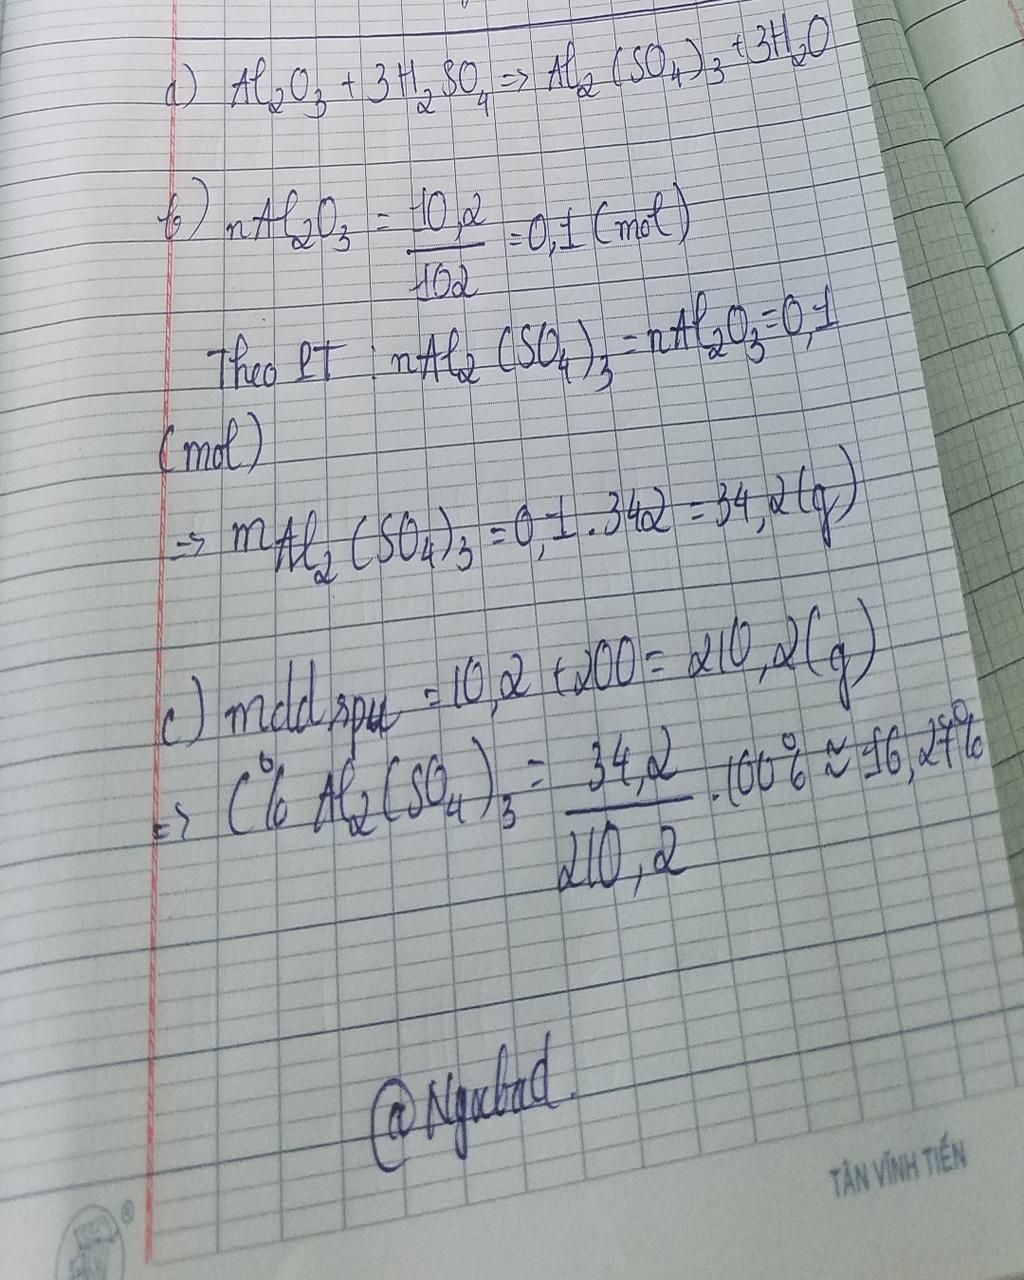 a) Al₂O₃ + 3H₂SO₄ => Al₂(SO₄)₃ + 3H₂O
b) nAl₂O₃ = 10,2/102 = 0,1 (mol)
Theo PT : nAl₂(SO₄)₃ = nAl₂O₃ = 0,1
(mol)
=> mAl₂(SO₄)₃ = 0,1.342 = 34,2(g)
c) mdd spu = 10,2 + 200 = 210,2(g)
=> C% Al₂(SO₄)₃ = 34,2/210,2 .100% ≈ 16,27%
@Ngubad.
TÂN VĨNH TIẾN
®